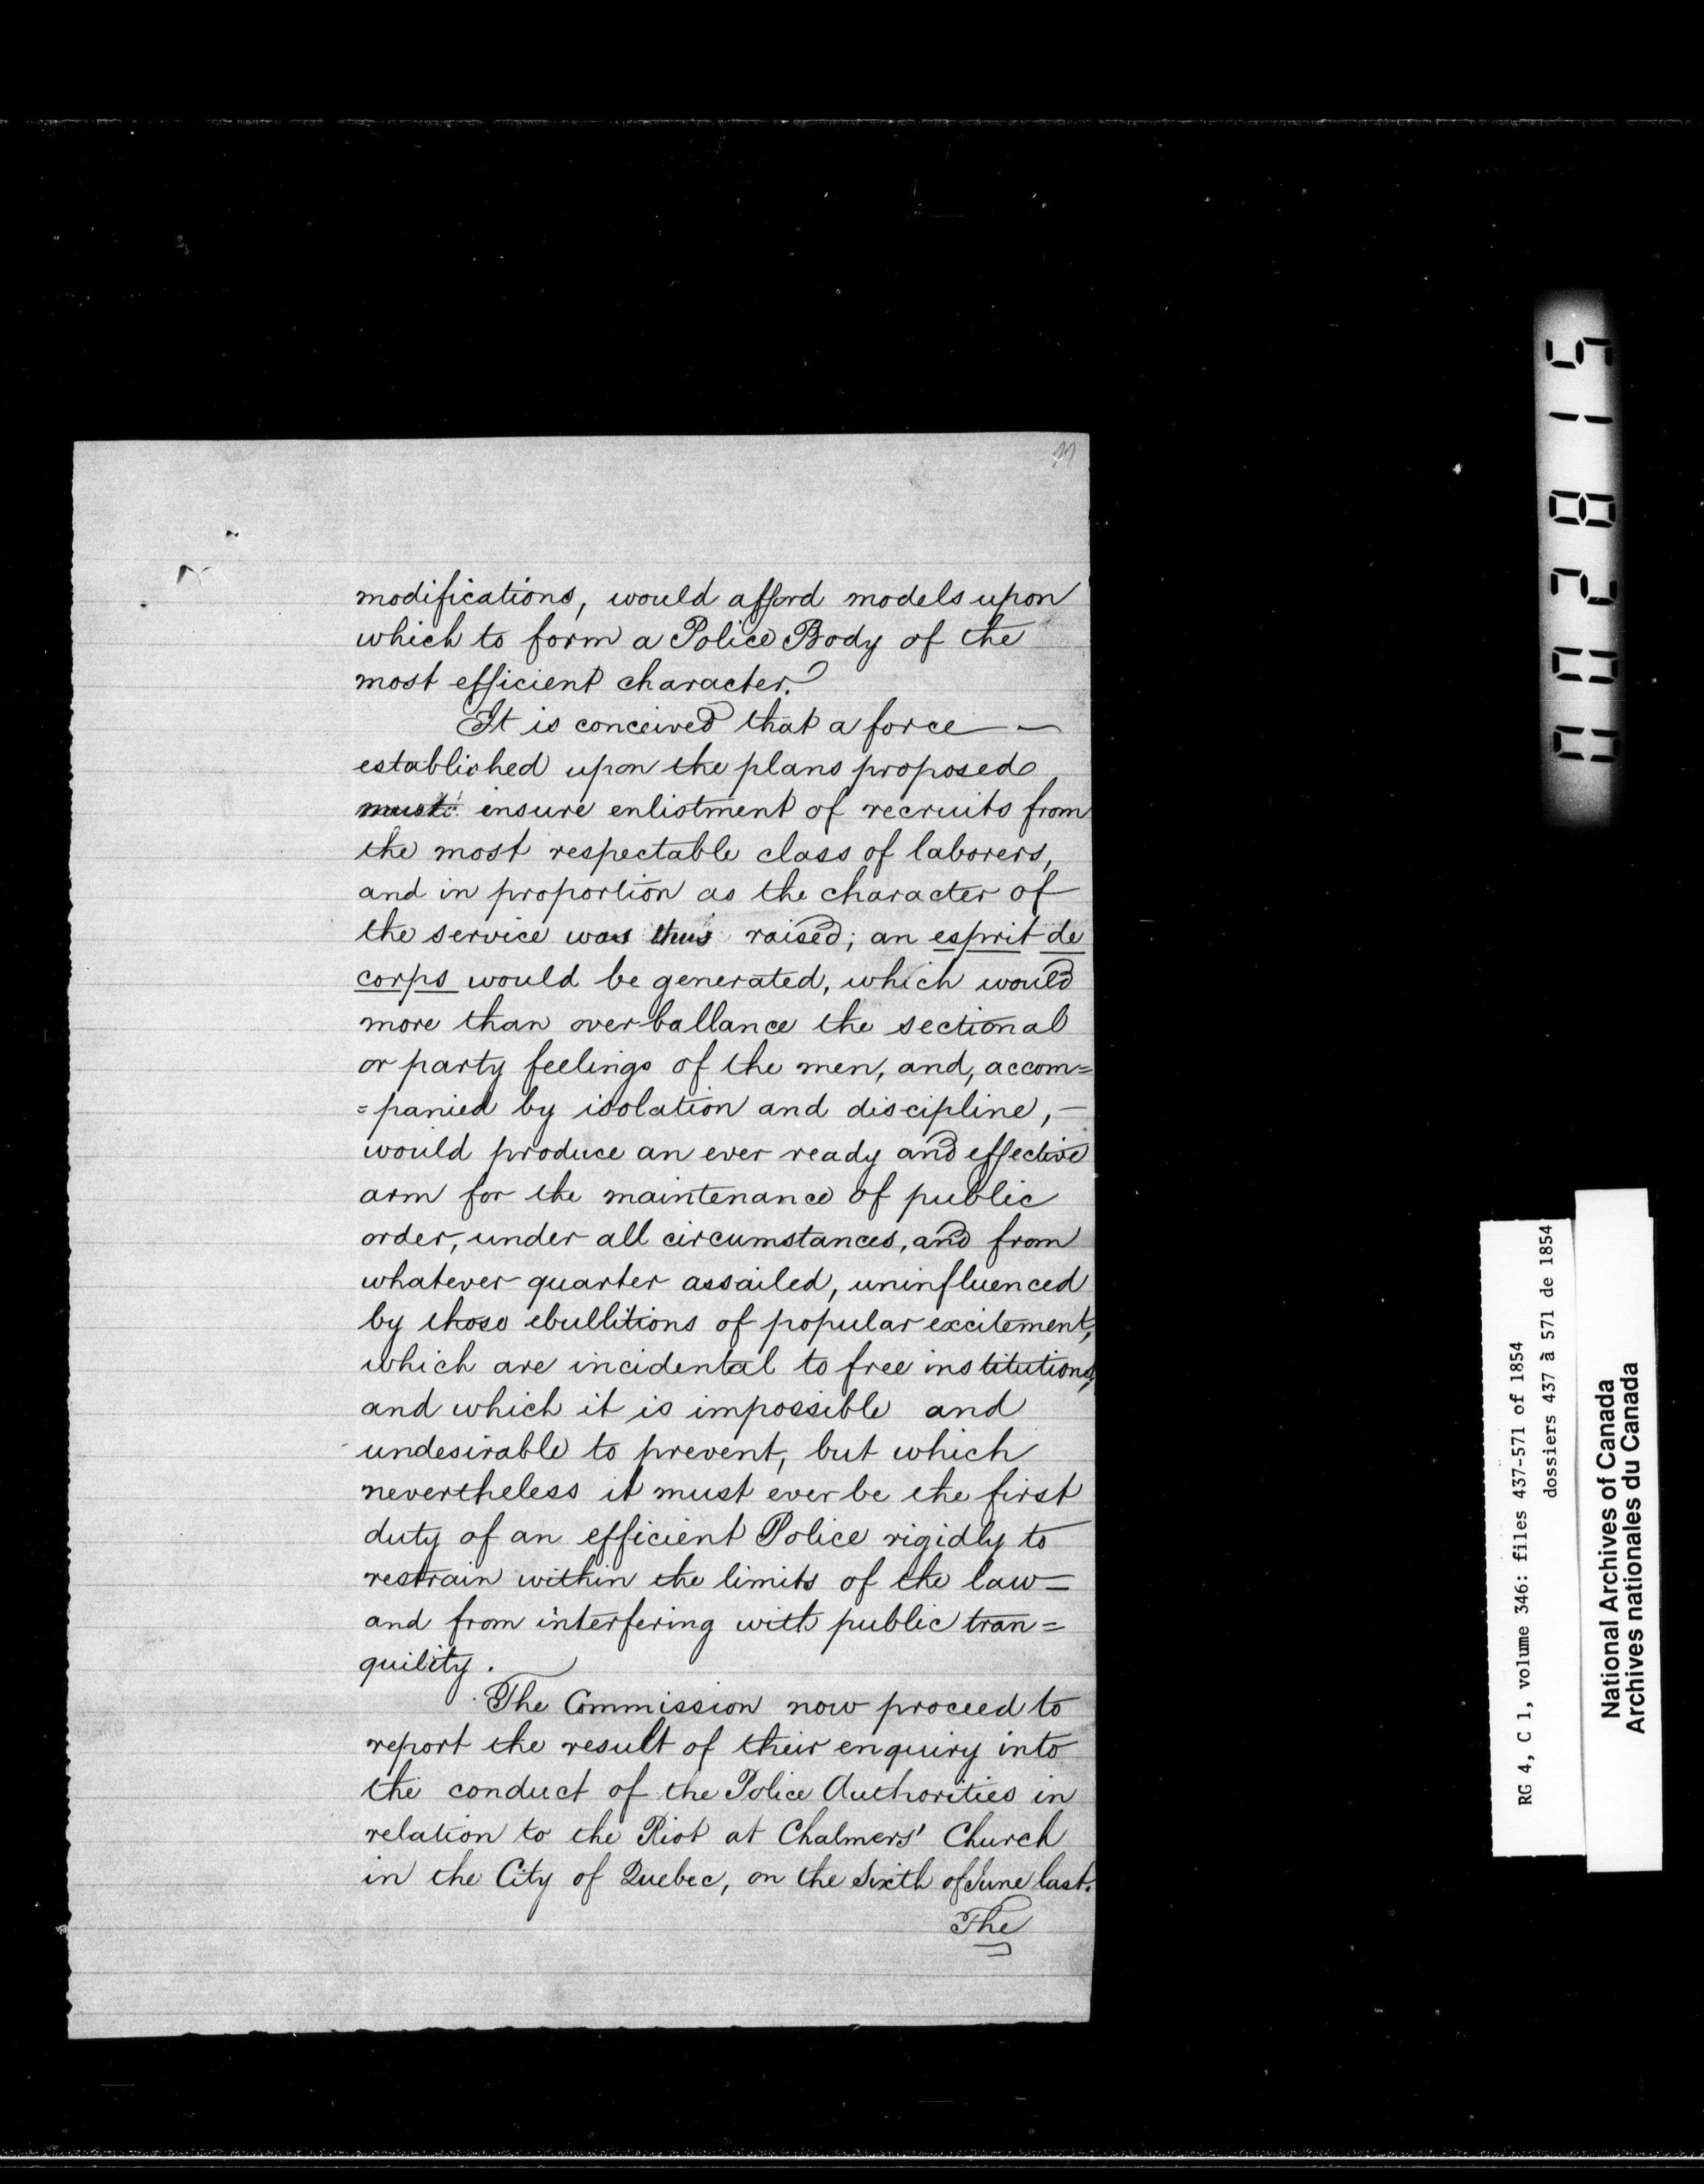 modifications, would afford models upon
which to form a Police Body of the
most efficient character.
It is conceived that a force —
established upon the plans proposed
must insure enlistment of recruits from
the most respectable class of laborers,
and in proportion as the character of
the service was thus raised; an esprit de
corps would be generated, which would
more than overballance the sectional
or party feelings of the men, and, accom=
=panied by isolation and discipline, —
would produce an ever ready and effective
arm for the maintenance of public
order, under all circumstances, and from
whatever quarter assailed, uninfluenced
by those ebullitions of popular excitement,
which are incidental to free institutions,
and which it is impossible and
undesirable to prevent, but which
nevertheless it must ever be the first
duty of an efficient Police rigidly to
restrain within the limits of the law —
and from interfering with public tran=
quility.
The Commission now proceed to
report the result of their enquiry into
the conduct of the Police Authorities in
relation to the Riot at Chalmers' Church
in the City of Quebec, on the Sixth of June last.
The
002815
RG 4, C 1, volume 346: files 437-571 of 1854
dossiers 437 à 571 de 1854
National Archives of Canada
Archives nationales du Canada